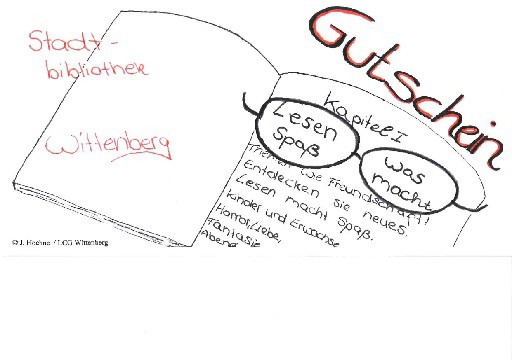 Stadt-
bibliothek
Wittenberg
Gutschein
Kapitel I
Lesen
Spaß
was
macht
Themen wie Freundschaft!
Entdecken sie neues!
Lesen macht Spaß.
Kinder und Erwachse
Horror, Liebe,
Fantasie
Abend
© J. Hoehne / LCG Wittenberg